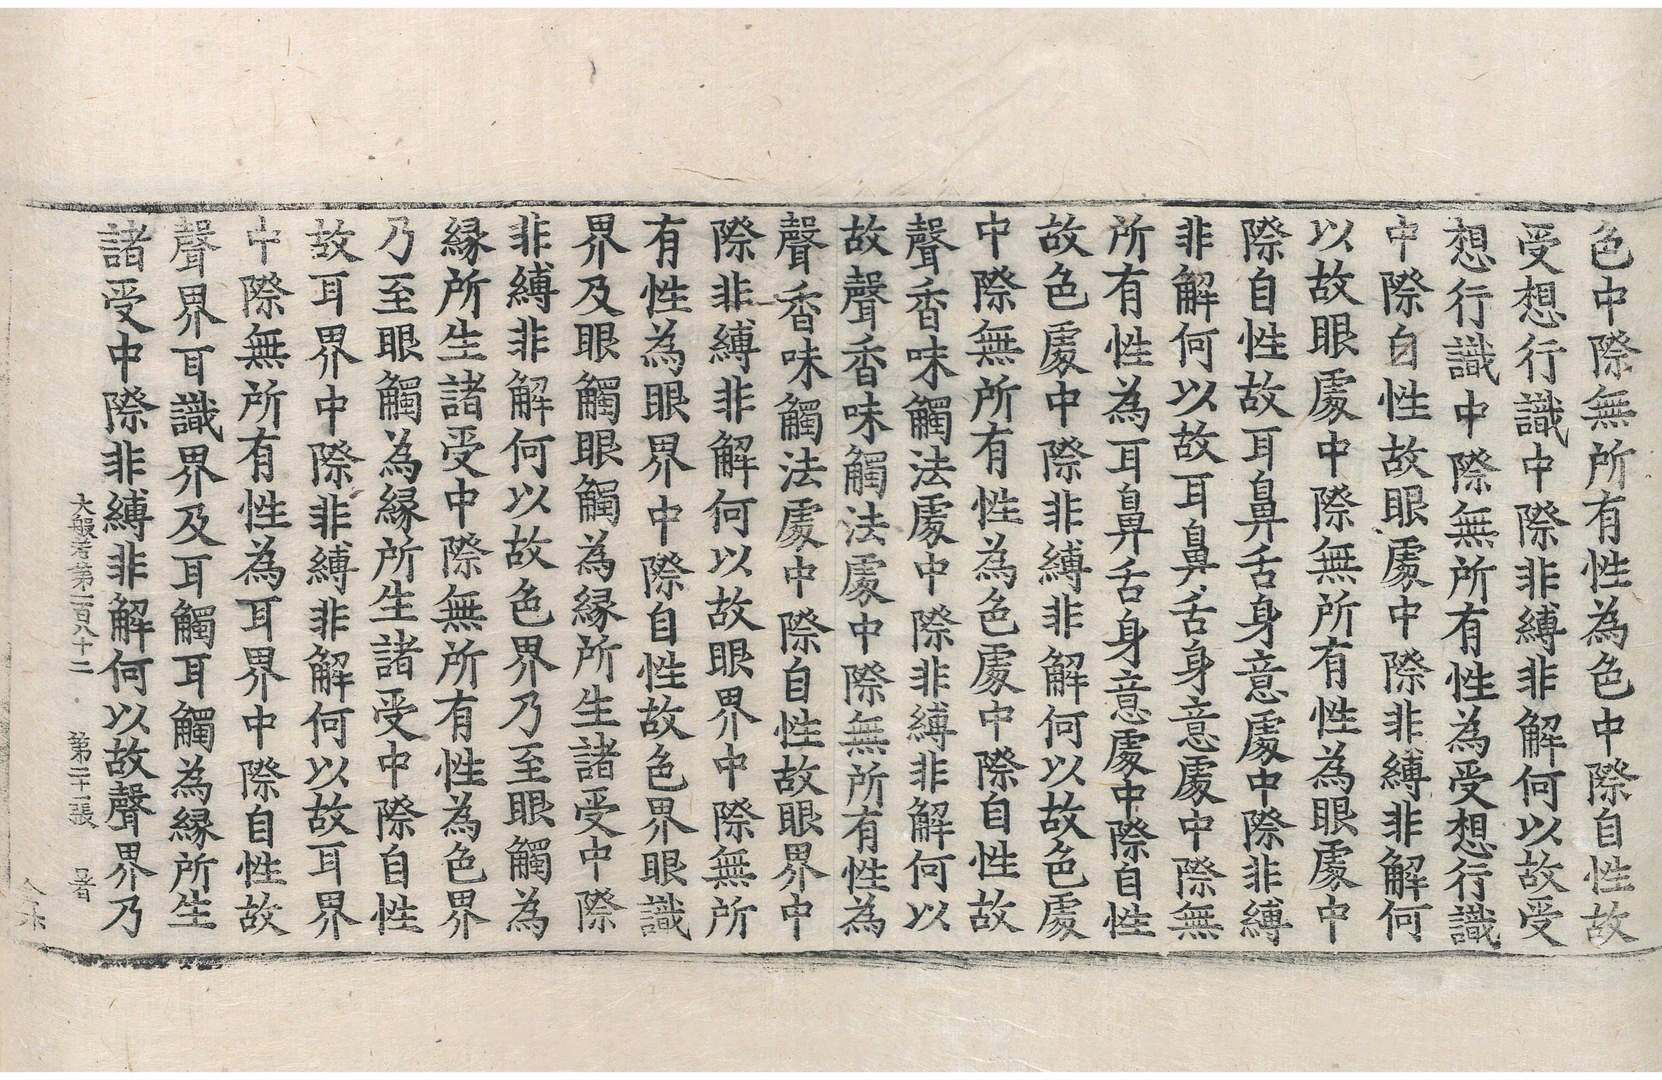 色中際無所有性為色中際自性故
受想行識中際非縛非解何以故受
想行識中際無所有性為受想行識
中際自性故眼處中際非縛非解何
以故眼處中際無所有性為眼處中
際自性故耳鼻舌身意處中際非縛
非解何以故耳鼻舌身意處中際無
所有性為耳鼻舌身意處中際自性
故色處中際非縛非解何以故色處
中際無所有性為色處中際自性故
聲香味觸法處中際非縛非解何以
故聲香味觸法處中際無所有性為
聲香味觸法處中際自性故眼界中
際非縛非解何以故眼界中際無所
有性為眼界中際自性故色界眼識
界及眼觸眼觸為緣所生諸受中際
非縛非解何以故色界乃至眼觸為
緣所生諸受中際無所有性為色界
乃至眼觸為緣所生諸受中際自性
故耳界中際非縛非解何以故耳界
中際無所有性為耳界中際自性故
聲界耳識界及耳觸耳觸為緣所生
諸受中際非縛非解何以故聲界乃
大般若第一百八十二 第二十一張 暑